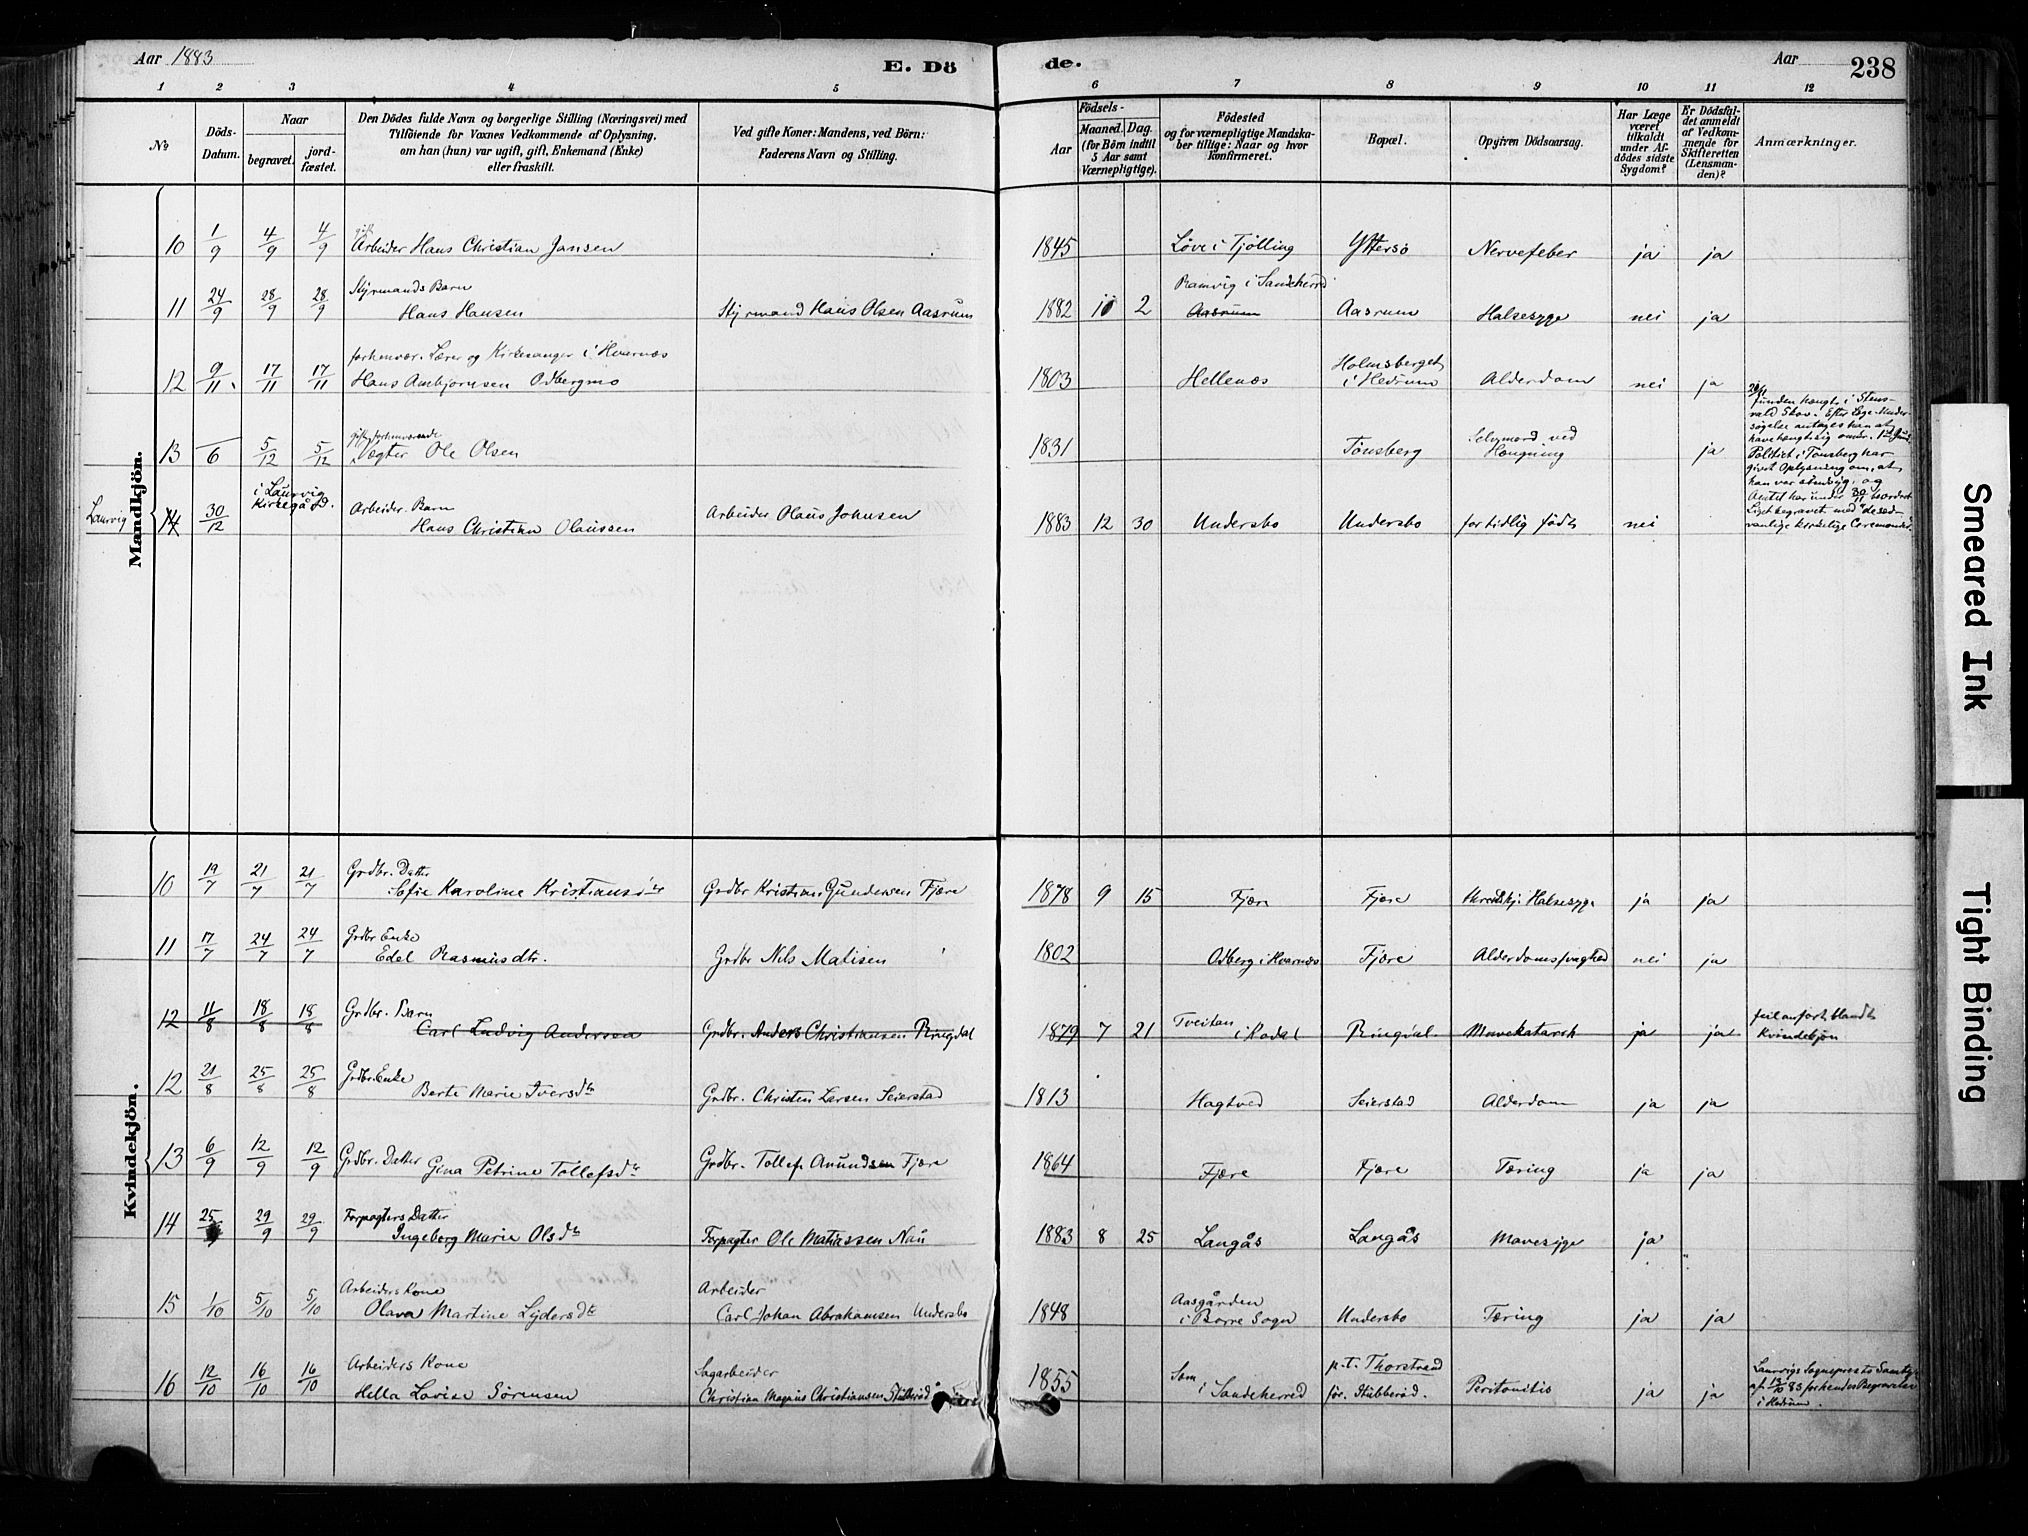 Aar 1883
E. Dö
de.
Aar
238
1 2 3 4 5 6 7 8 9 10 11 12
№
Döds-Datum.
Naar
begravet.
jord-fæstet.
Den Dödes fulde Navn og borgerlige Stilling (Næringsvei) med
Tilföiende for Voxnes Vedkommende af Oplysning,
om han (hun) var ugift, gift, Enkemand (Enke)
eller fraskilt.
Ved gifte Koner: Mandens, ved Börn:
Faderens Navn og Stilling.
Födsels-
Aar
Maaned.
Dag.
(for Börn indtil
5 Aar samt
Værnepligtige).
Födested
og for værnepligtige Mandska-
ber tillige: Naar og hvor
konfirmeret.
Bopæl.
Opgiven Dödsaarsag.
Har Læge
været
tilkaldt
under Af-
dödes sidste
Sygdom?
Er Dödsfal-
det anmeldt
af Vedkom-
mende for
Skifteretten
(Lensman-
den)?
Anmærkninger.
Mandkjön.
10 1/9 4/9 4/9 gift Arbeider Hans Christian Jansen 1845 Løve i Tjølling Yttersö Nervefeber ja ja
11 24/9 28/9 28/9 Styrmands Barn Hans Hansen Styrmand Hans Olsen Aasrum 1882 10 2 Ramvig i Sandeherred Aasrum Aasrum Halsesyge nei ja
12 9/11 17/11 17/11 forhenvær. Lærer og Kirkesanger i Hvarnæs Hans Ambjørnsen Odbergmo 1803 Hellenæs Holmsberget i Hedrum Alderdom nei ja
13 /6 5/12 5/12 gift forhenværende Vægter Ole Olsen 1831 Tønsberg Selvmord ved Hængning ja
funden hængt i Stens-
vald Skov. Efter Læge-Under-
søgelse antages han at
have hængt sig omkr. 1ste Juni.
Politiet i Tønsberg har
givet Oplysning om, at
han var sindssyg, og
Amtet har under 30/11
Liget begravet med de sæd-
vanlige kirkelige Ceremonier.
Laurvig 14 30/12 i Laurvig Kirkegård. Arbeider. Barn Hans Christian Olaussen Arbeider Olaus Johnsen 1883 12 30 Undersbo Undersbo for tidlig födt nei
Kvindekjön.
10 19/7 21/7 21/7 Grdbr. Datter Sofie Karoline Kristiansdtr Grdbr Kristian Gundersen Fjære 1878 9 15 Fjære Fjære Halsesyge ja ja
11 17/7 24/7 24/7 Grdbr Enke Edel Rasmusdtr. Grdbr Nils Matisen 1802 Odberg i Hvarnæs Fjære Alderdomssvaghed nei ja
12 11/8 18/8 18/8 Grdbr. Barn Carl Ludvig Andersen Grdbr. Anders Christiansen Ringdal 1879 7 21 Tveitan i Kodal Ringdal Mavekatarrh ja ja feil anført blandt Kvindekjön
12 21/8 25/8 25/8 Grdbr. Enke Berte Marie Iversdtr Grdbr. Christen Larsen Seierstad 1813 Hagtved Seierstad Alderdom ja ja
13 6/9 12/9 12/9 Grdbr. Datter Gina Petrine Tollefsdtr Grdbr. Tollef Amundsen Fjære 1864 Fjære Fjære Tæring ja ja
14 25/9 29/9 29/9 Forpagters Datter Ingeborg Marie Olsdtr Forpagter Ole Matiassen Nau 1883 8 25 Langås Langås Mavesyge ja
15 1/10 5/10 5/10 Arbeiders Kone Olava Martine Lydersdtr Arbeider Carl Johan Abrahamsen Undersbo 1848 Aasgården i Borre Sogn Undersbo Tæring ja ja
16 12/10 16/10 16/10 Arbeiders Kone Hella Lovise Sörensen Sagarbeider Christian Magnus Christiansen Stubberöd 1855 Sem i Sandeherred p.t. Thorstrand för. Stubberöd. Peritonitis ja ja Laurvigs Sognepræsts Samtyk. af 13/10 83 for hendes Begravelse i Hedrum.
Smeared Ink
Tight Binding